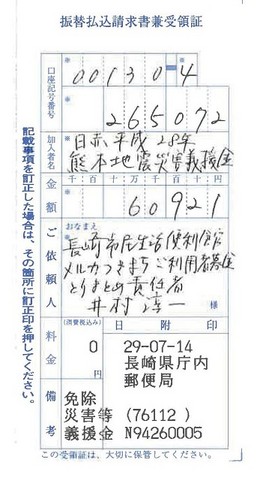 振替払込請求書兼受領証
口座記号番号
00130-4
265072
加入者名
日赤平成28年
熊本地震災害義援金
金額
千百十万千百十円
60921
ご依頼人
おなまえ
長崎市民生活便利館
メルカつきまちご利用者募金
とりまとめ責任者
井村淳一
様
料金
(消費税込み)
0
円
日附印
29-07-14
長崎県庁内
郵便局
備考
免除
災害等 (76112 )
義援金 N94260005
この受領証は、大切に保管してください。
記載事項を訂正した場合は、その箇所に訂正印を押してください。